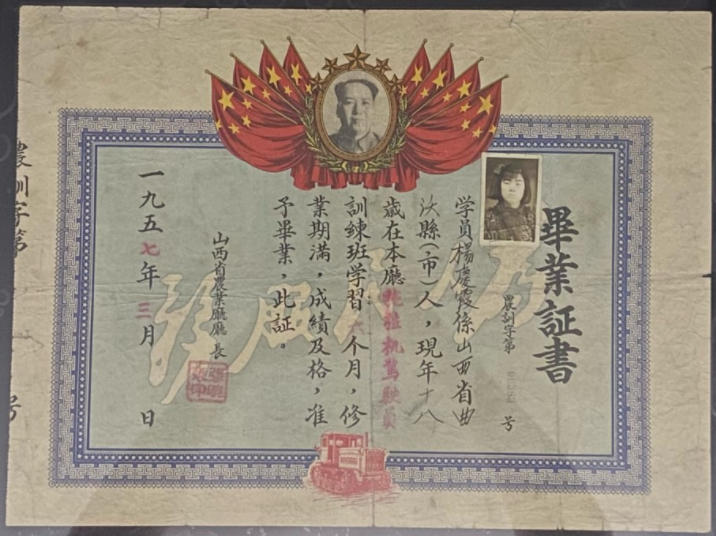 畢業証書
農訓字第 号
学員楊慶霞係山西省曲
汏縣(市)人，現年十八
歲在本廳拖拉机駕駛員
訓練班学習六个月，修
業期滿，成績及格，准
予畢業，此証。
山西省農業廳廳長
一九五七年三月 日
農訓字第
号